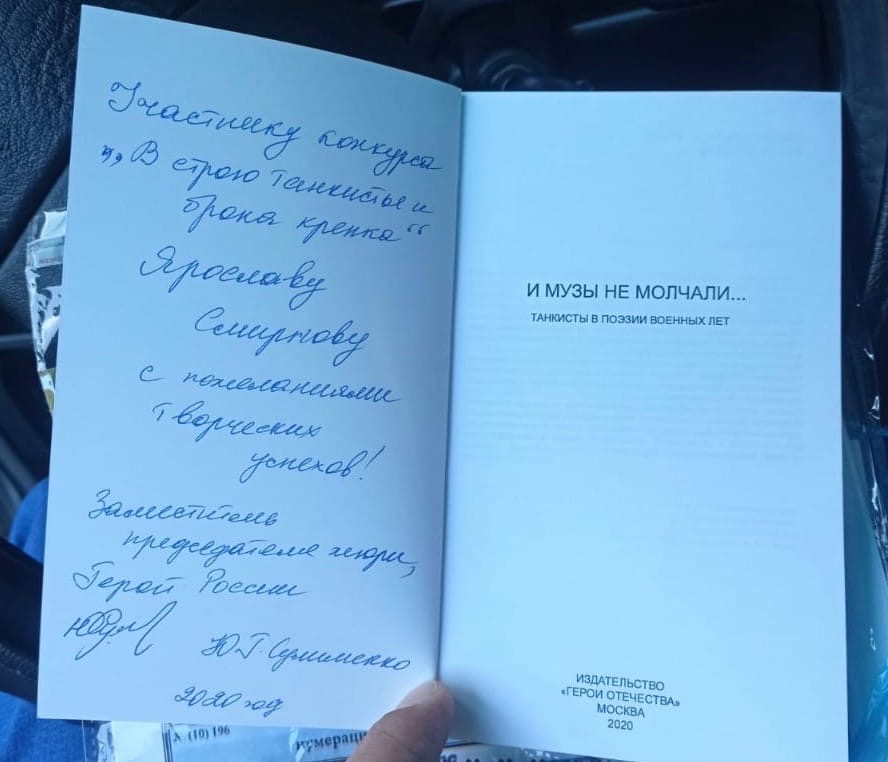 Участнику конкурса
„В строю танкисты и
броня крепка“
Ярославу
Смирнову
с пожеланиями
творческих
успехов!
Заместитель
председателя жюри,
Герой России
Ю.Г. Сулименко
2020 год
И МУЗЫ НЕ МОЛЧАЛИ...
ТАНКИСТЫ В ПОЭЗИИ ВОЕННЫХ ЛЕТ
ИЗДАТЕЛЬСТВО
«ГЕРОИ ОТЕЧЕСТВА»
МОСКВА
2020
(10) 196
нумераци